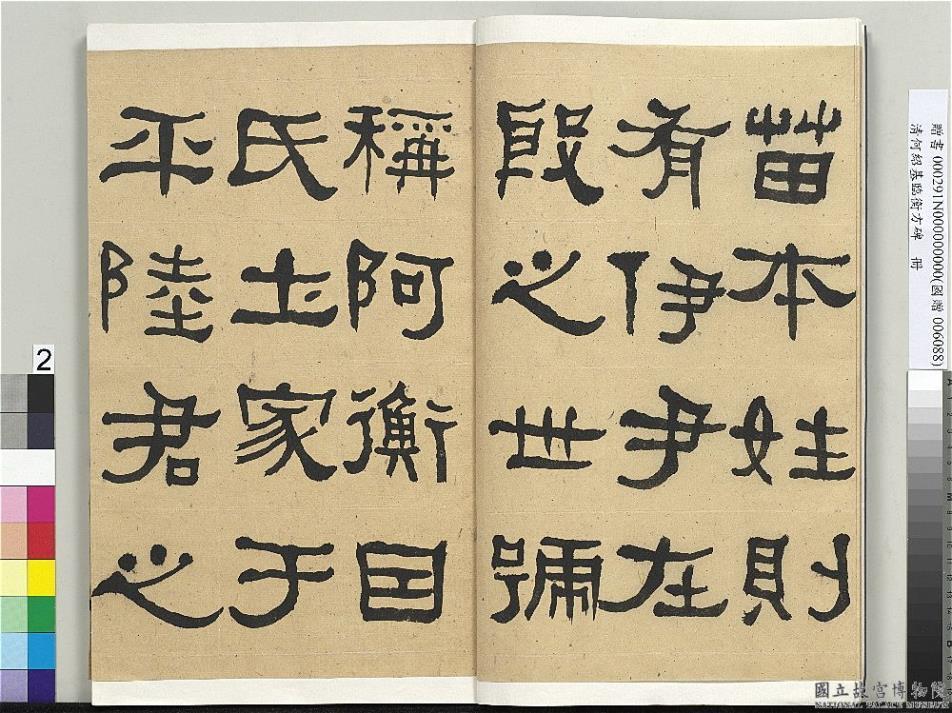 苗本姓則
有伊尹在
殷之世號
稱阿衡因
氏土家于
平陸君之
贈書 000291N000000000(國贈 006088)
清何紹基臨衡方碑 冊
2
國立故宮博物院
NATIONAL PALACE MUSEUM